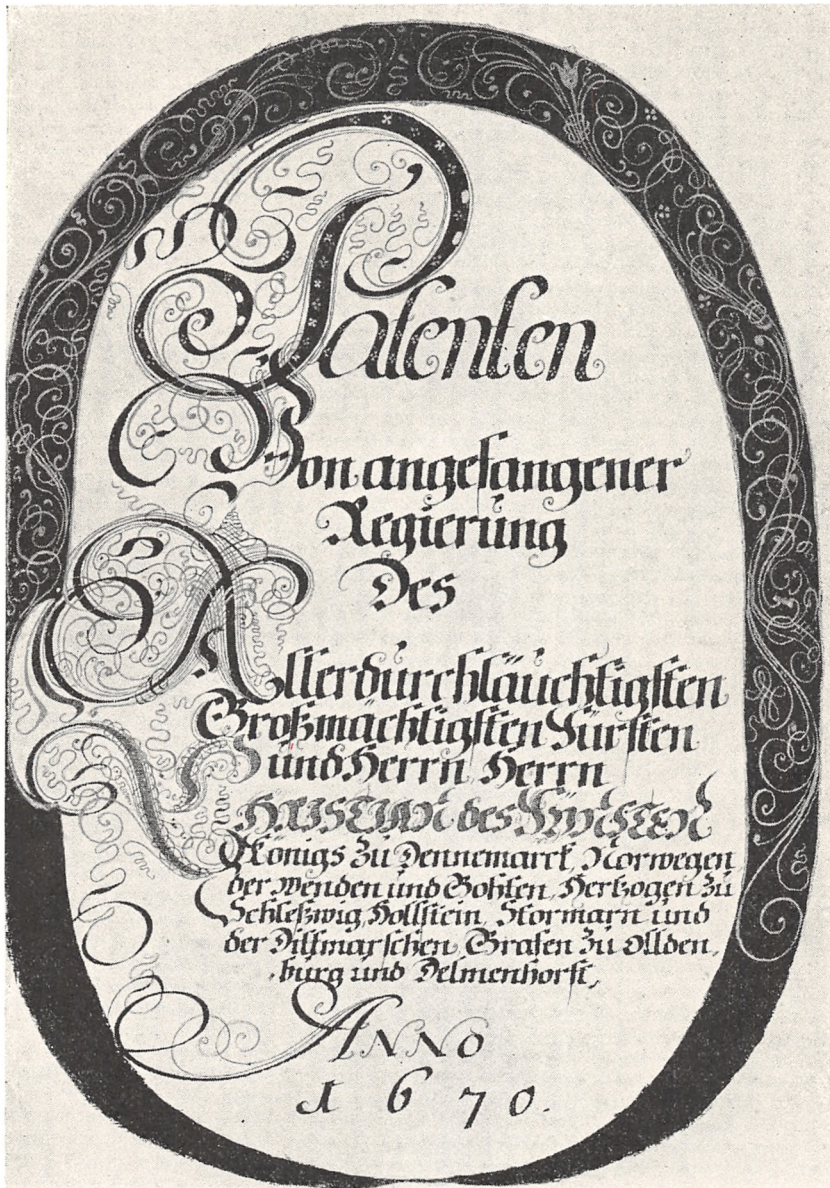 Patenten
Von angefangener
Regierung
Des
Allerdurchläuchtigsten
Großmächtigsten Fürsten
und Herrn Herrn
CHRISTIAN des FÜNFTEN
Königs zu Dennemarck, Norwegen
der Wenden und Gohten, Hertzogen zu
Schleßwig, Hollstein, Stormarn und
der Ditmarschen, Grafen zu Ollden,
burg und Delmenhorst,
ANNO
1670.